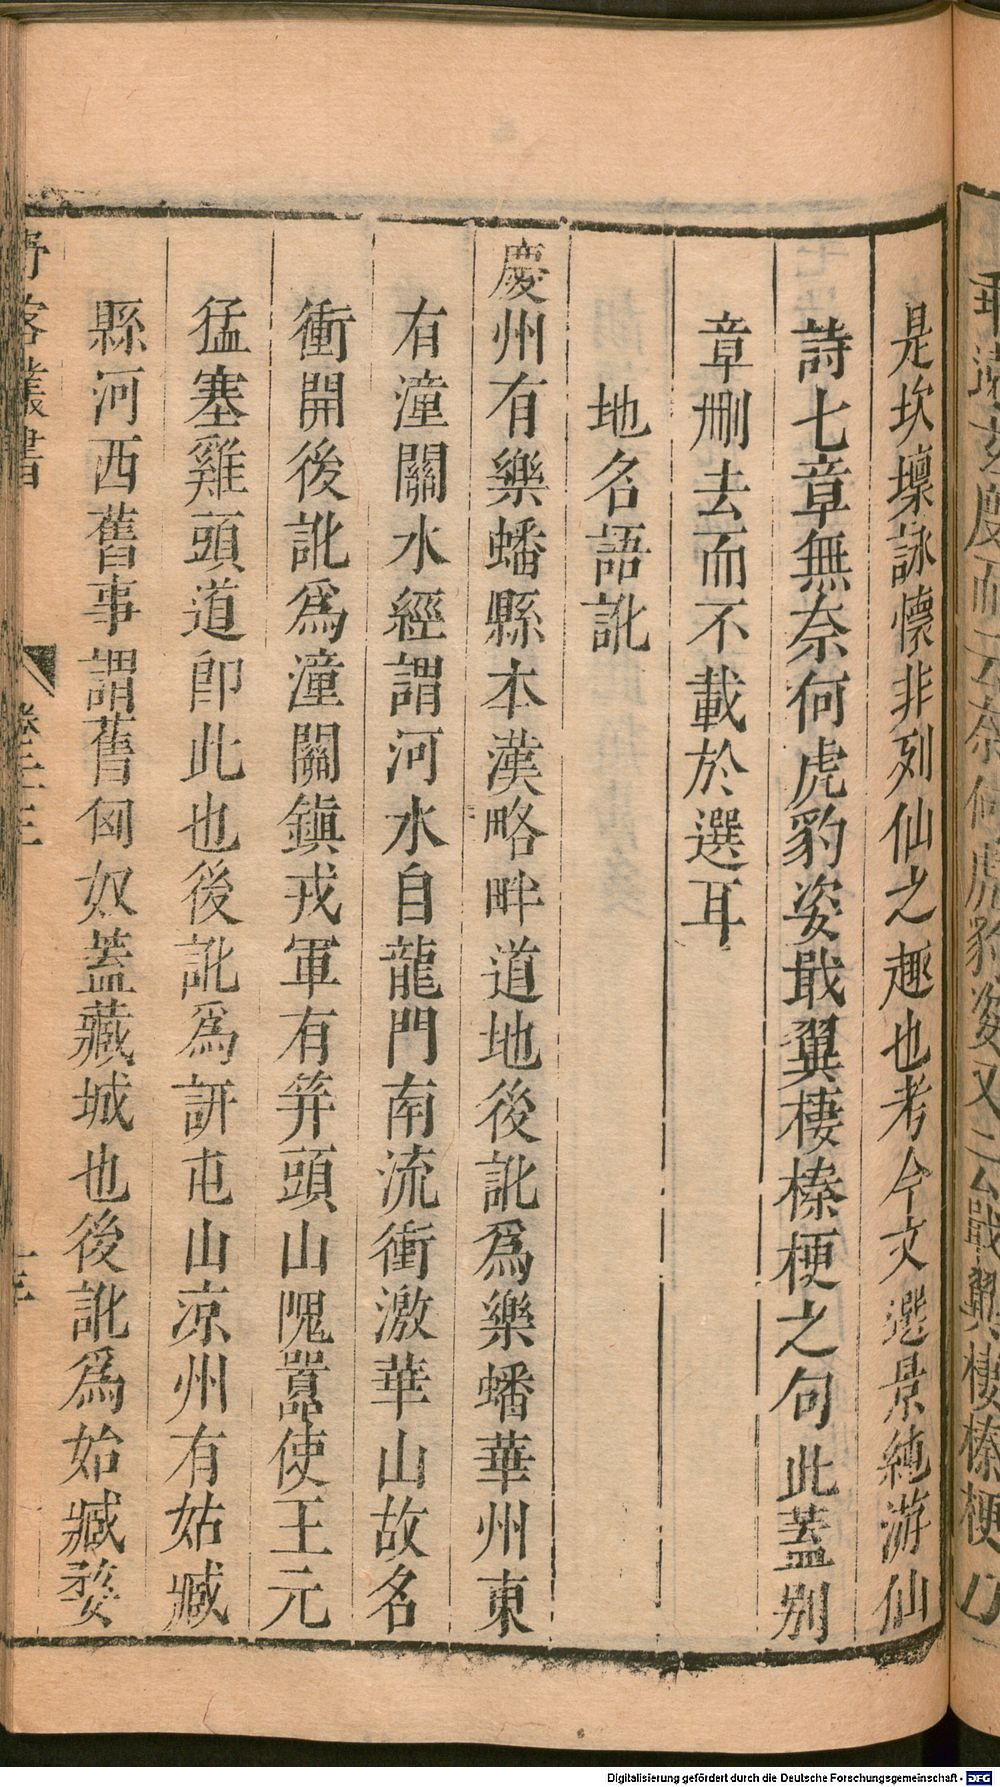 是坎壈詠懷非列仙之趣也考今文選景純游仙
詩七章無奈何虎豹姿戢翼棲榛梗之句此蓋別
章刪去而不載於選耳
地名語訛
慶州有樂蟠縣本漢略畔道地後訛爲樂蟠華州東
有潼關水經謂河水自龍門南流衝激華山故名
衝關後訛爲潼關鎮戎軍有筓頭山隗囂使王元
猛塞雞頭道卽此也後訛爲訮屯山涼州有姑臧
縣河西舊事謂舊匈奴蓋藏城也後訛爲始臧婺
野客叢書
卷二十三
Digitalisierung gefördert durch die Deutsche Forschungsgemeinschaft - DFG